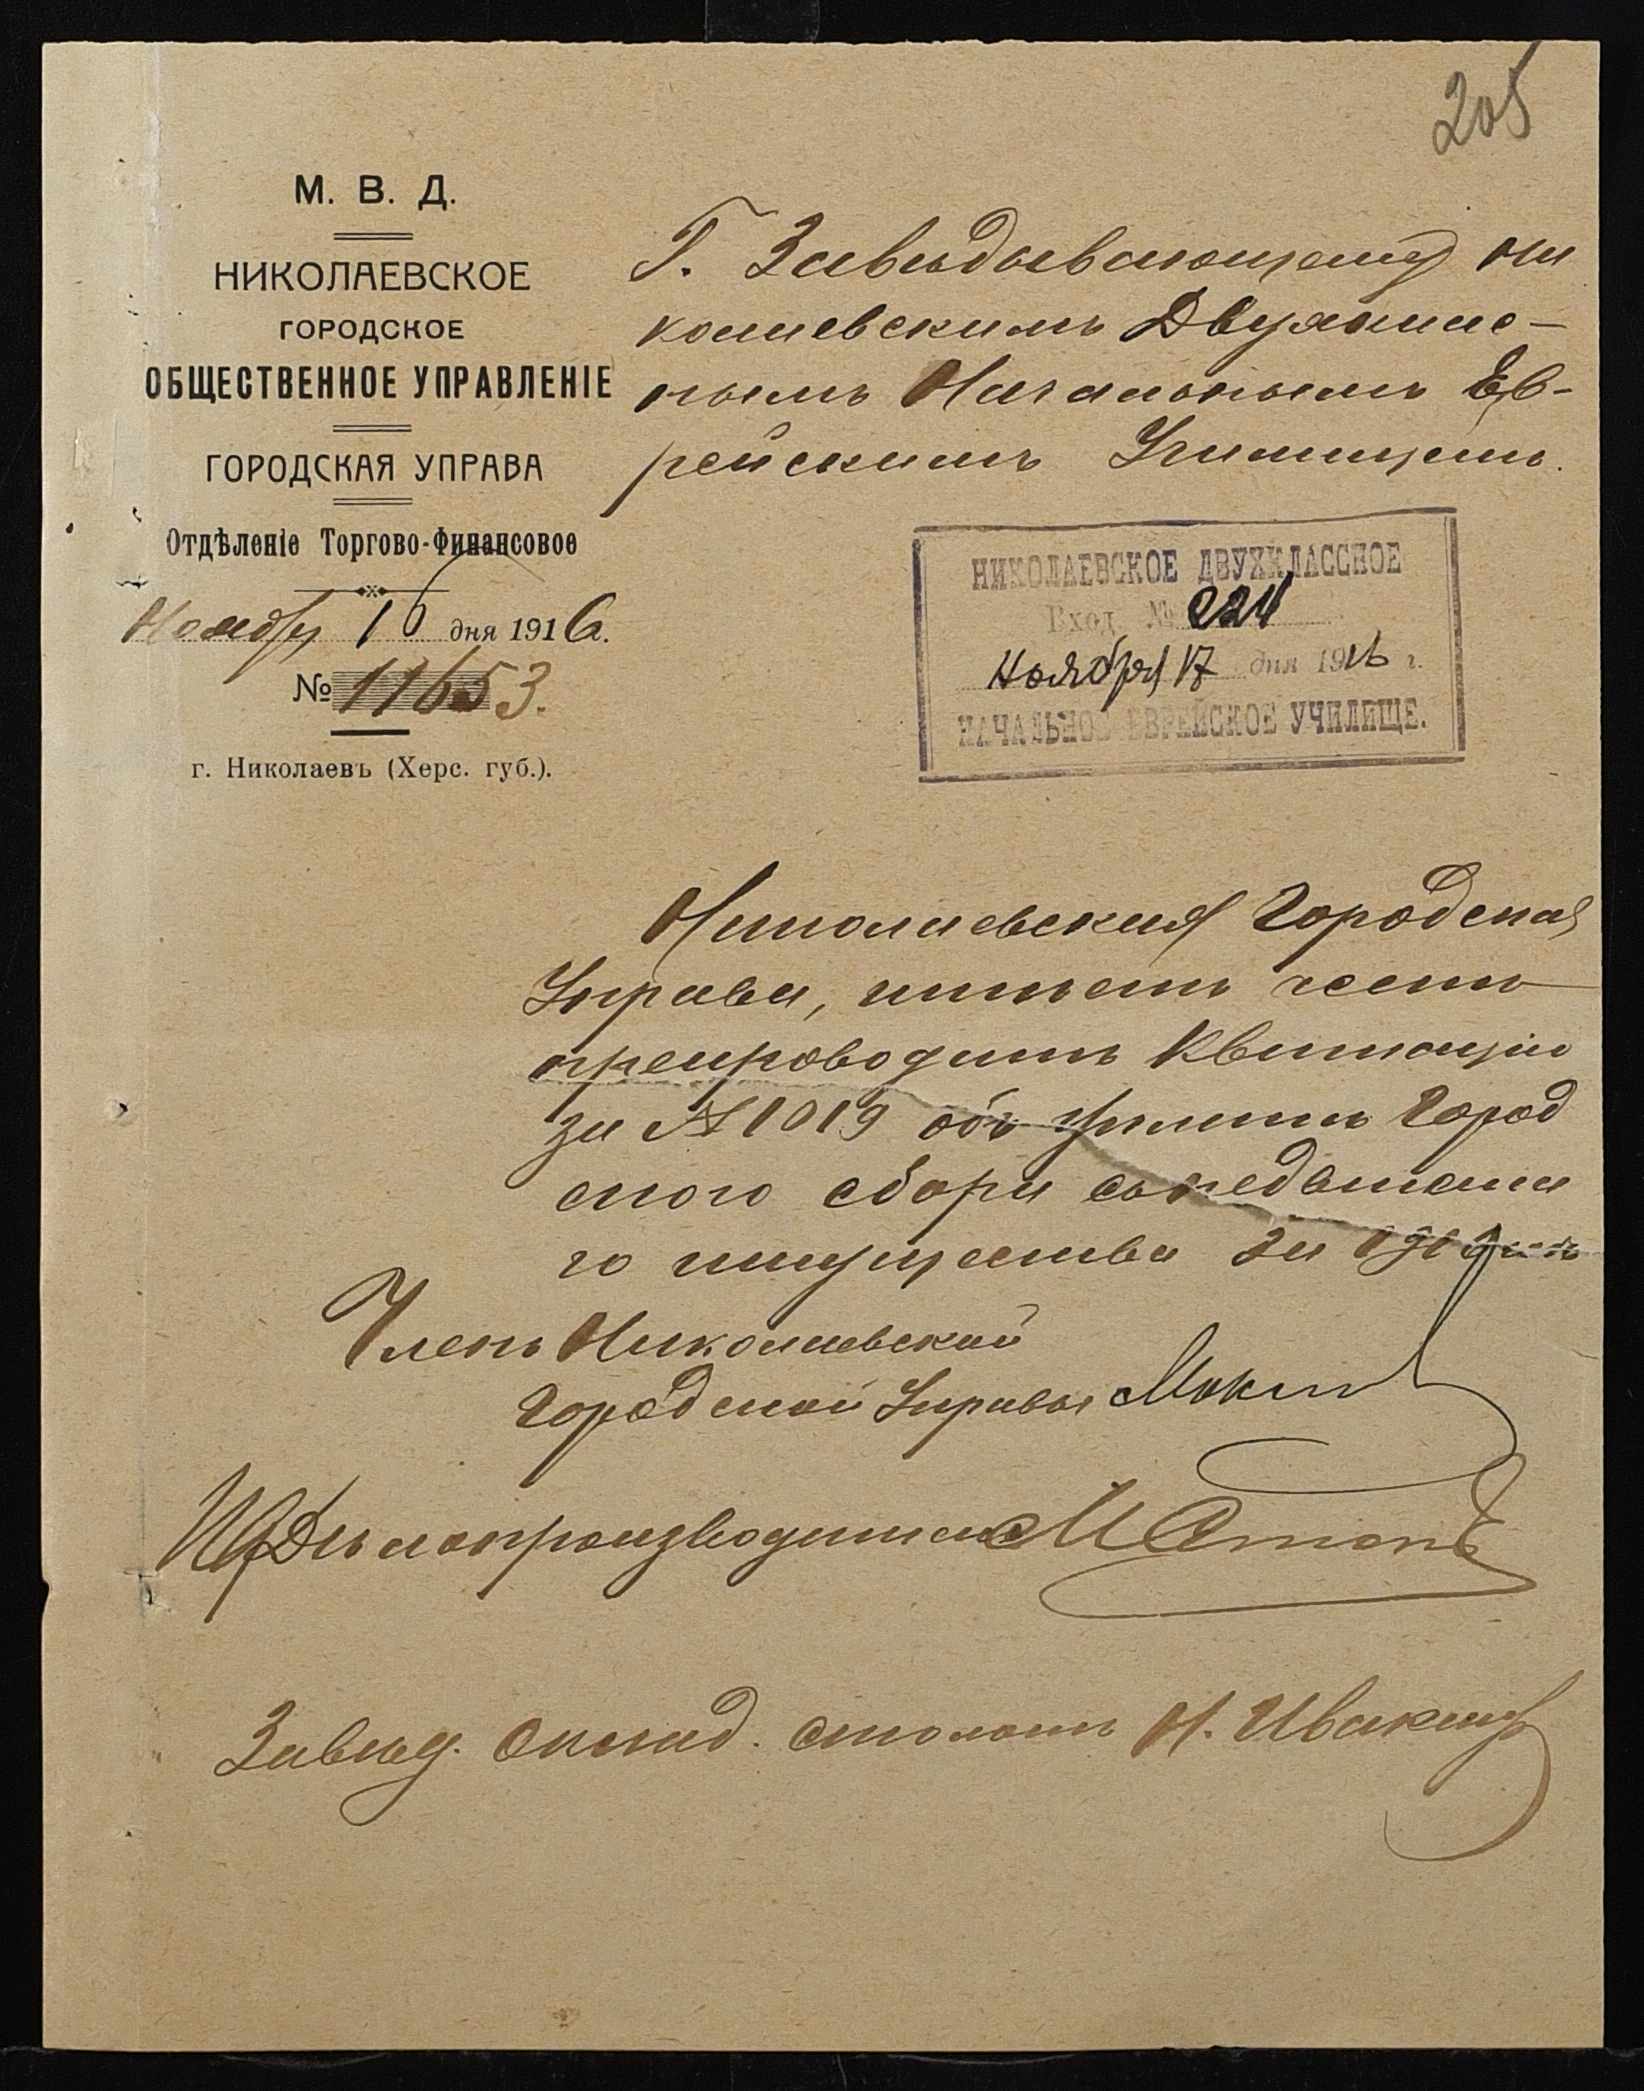 205
М. В. Д.
НИКОЛАЕВСКОЕ
ГОРОДСКОЕ
ОБЩЕСТВЕННОЕ УПРАВЛЕНІЕ
ГОРОДСКАЯ УПРАВА
Отдѣленіе Торгово-Финансовое
Ноября 16 дня 1916 г.
№ 11653.
г. Николаевъ (Херс. губ.).
Г. Завѣдывающему Ни
колаевскимъ Двухклас-
нымъ Начальнымъ Ев-
рейскимъ Училищемъ.
НИКОЛАЕВСКОЕ ДВУХКЛАССНОЕ
Вход. № 224
Ноября 17 дня 1916 г.
НАЧАЛЬНОЕ ЕВРЕЙСКОЕ УЧИЛИЩЕ.
Николаевская Городская
Управа, имѣетъ честь
препроводить квитанцію
за № 1019 объ уплатѣ Город
ского сбора съ недвижима
го имущества за
Членъ Николаевской
Городской Управы
И.д. Дѣлопроизводителя
Завѣд. оклад. столомъ Н.